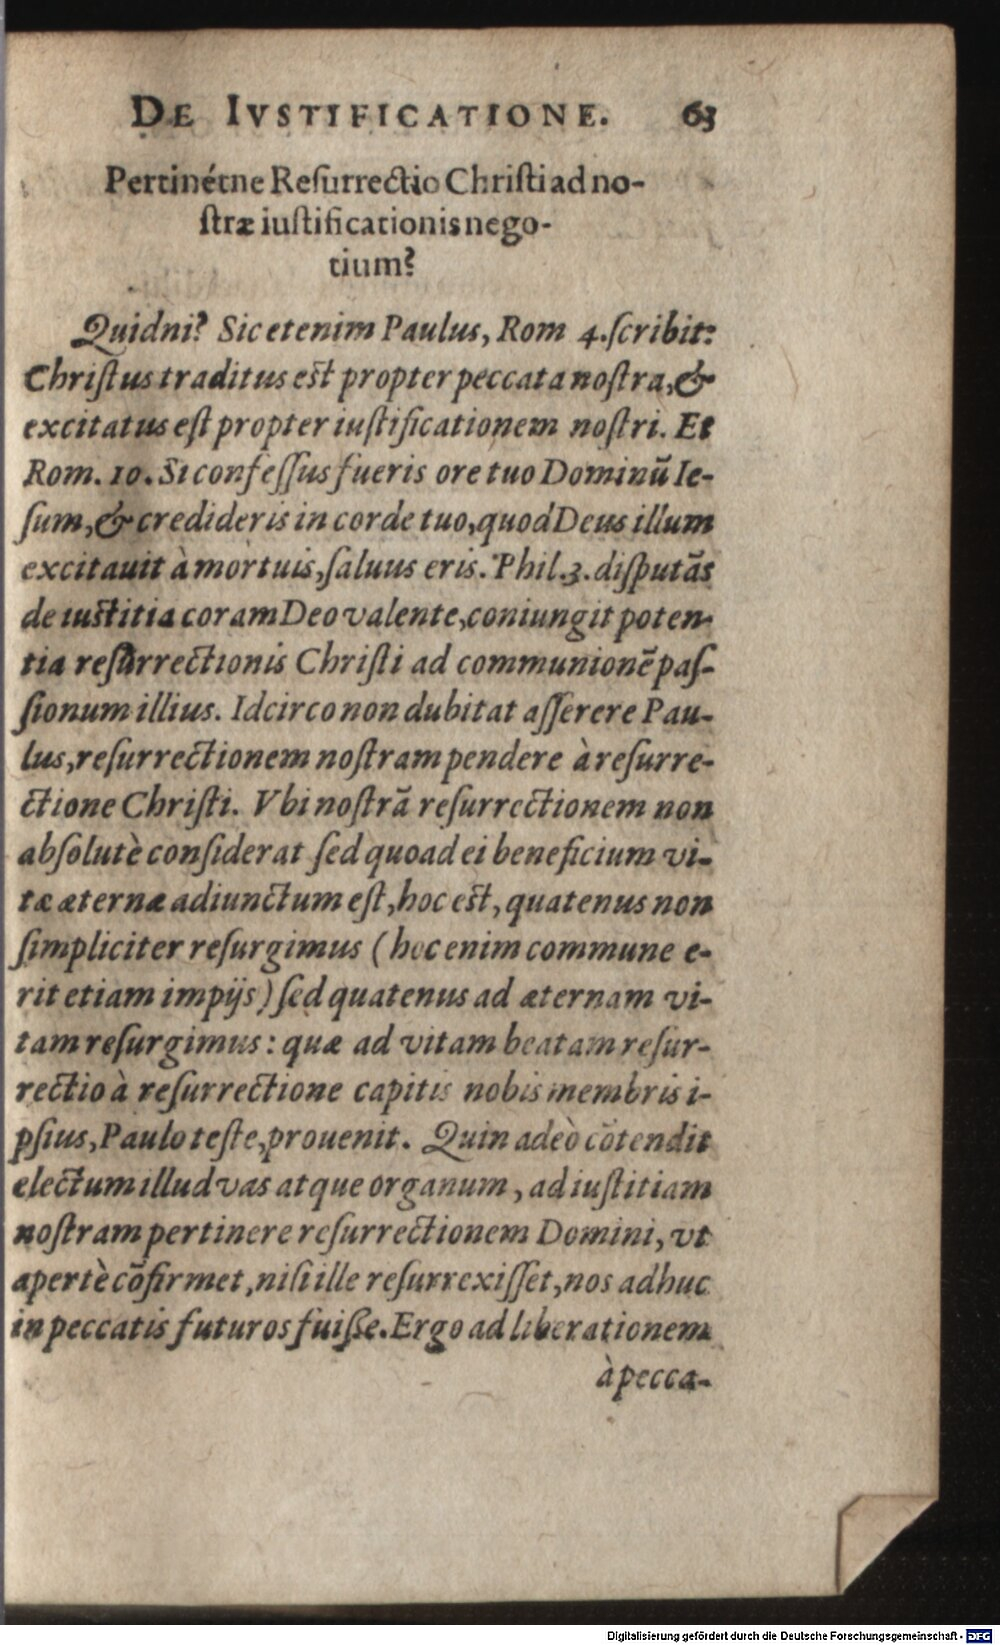 DE IVSTIFICATIONE. 63
Pertinétne Resurrectio Christi ad no-
stræ iustificationis nego-
tium?
Quidni? Sic etenim Paulus, Rom 4. scribit:
Christus traditus est propter peccata nostra, &
excitatus est propter iustificationem nostri. Et
Rom. 10. Si confessus fueris ore tuo Dominū Ie-
sum, & credideris in corde tuo, quod Deus illum
excitauit à mortuis, saluus eris. Phil. 3. disputās
de iustitia coram Deo valente, coniungit poten-
tia resurrectionis Christi ad communionē pas-
sionum illius. Idcirco non dubitat asserere Pau-
lus, resurrectionem nostram pendere à resurre-
ctione Christi. Vbi nostrā resurrectionem non
absolutè considerat sed quoad ei beneficium vi-
tæ æternæ adiunctum est, hoc est, quatenus non
simpliciter resurgimus (hoc enim commune e-
rit etiam impijs) sed quatenus ad æternam vi-
tam resurgimus: quæ ad vitam beatam resur-
rectio à resurrectione capitis nobis membris i-
psius, Paulo teste, prouenit. Quin adeò cōtendit
electum illud vas atque organum, ad iustitiam
nostram pertinere resurrectionem Domini, vt
apertè cōfirmet, nisi ille resurrexisset, nos adhuc
in peccatis futuros fuisse. Ergo ad liberationem
à pecca-
Digitalisierung gefördert durch die Deutsche Forschungsgemeinschaft - DFG